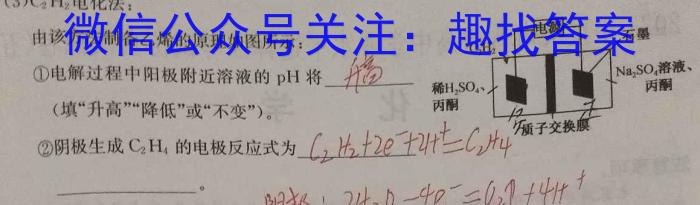 (3)C₂H₂电化法:
微信公众号关注：趣找答案
由该
①电解过程中阳极附近溶液的 pH 将 升高
(填“升高”“降低”或“不变”)。
②阴极生成 C₂H₄ 的电极反应式为 C₂H₂+2e⁻+2H⁺=C₂H₄
。
2H₂O-4e⁻=O₂↑+4H⁺
电源
石墨
稀H₂SO₄、
丙酮
Na₂SO₄溶液、
丙酮
质子交换膜